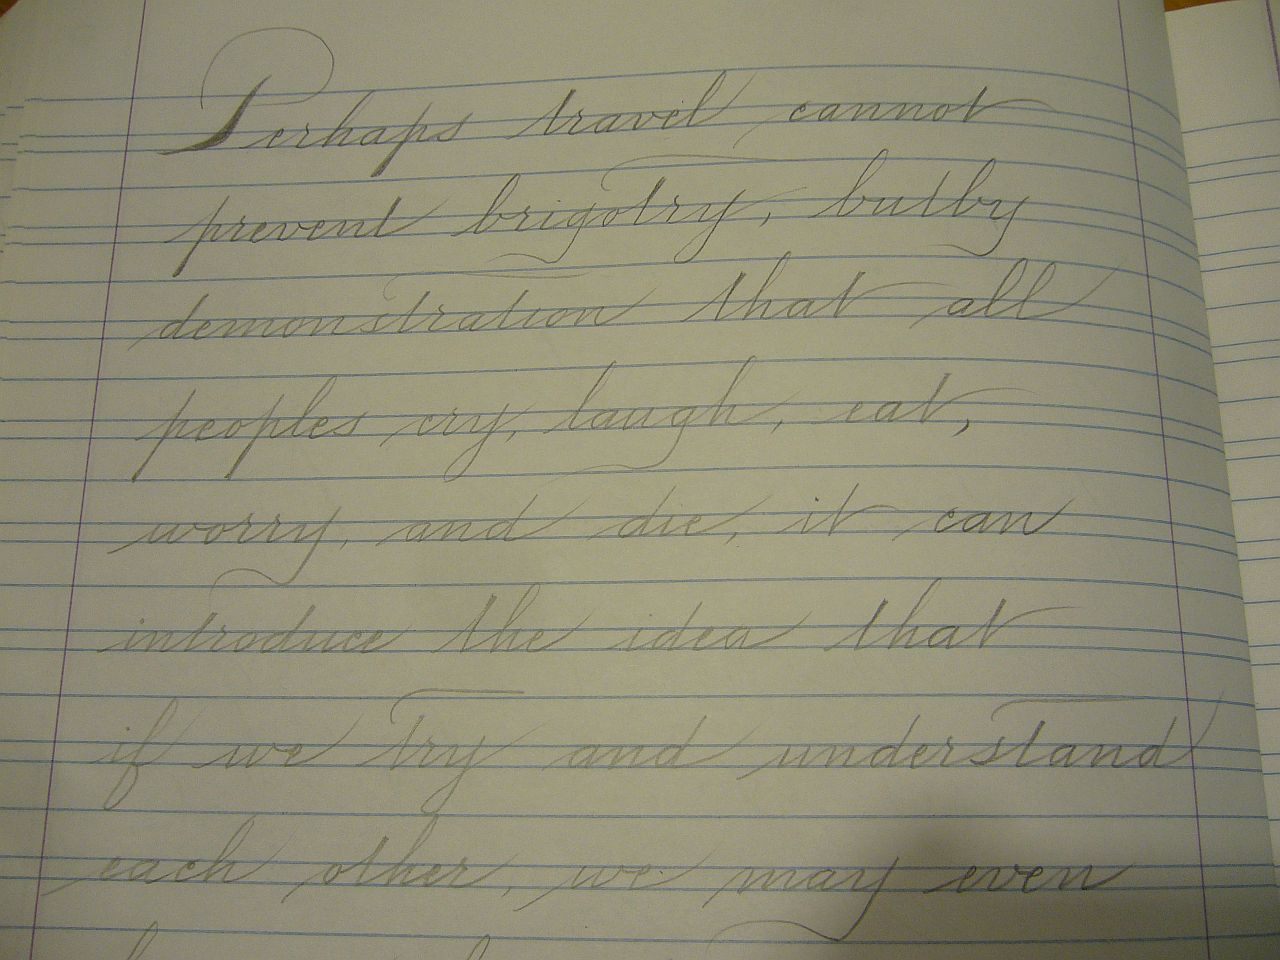 Perhaps travel cannot
prevent brigotry, but by
demonstration that all
peoples cry, laugh, eat,
worry, and die, it can
introduce the idea that
if we try and understand
each other, we may even